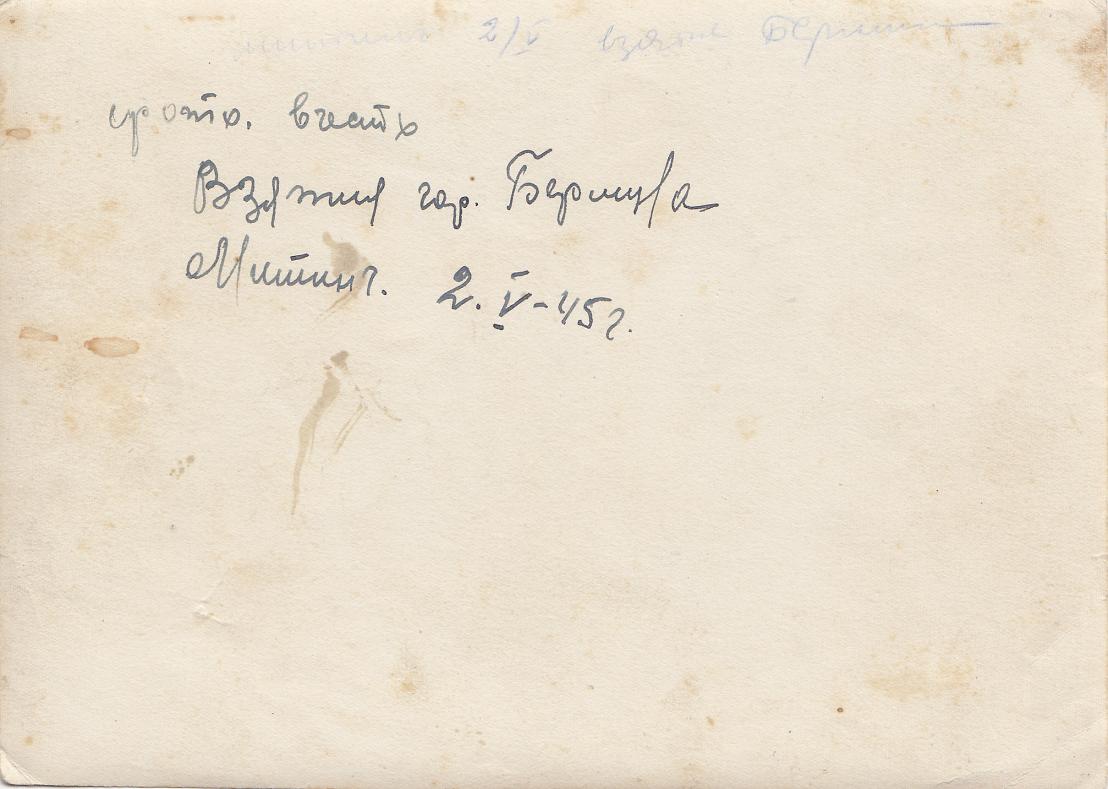 митинг 2/V взятие Берлина
фото. вчесть
Взятия гор. Берлина
Митинг. 2.V-45г.